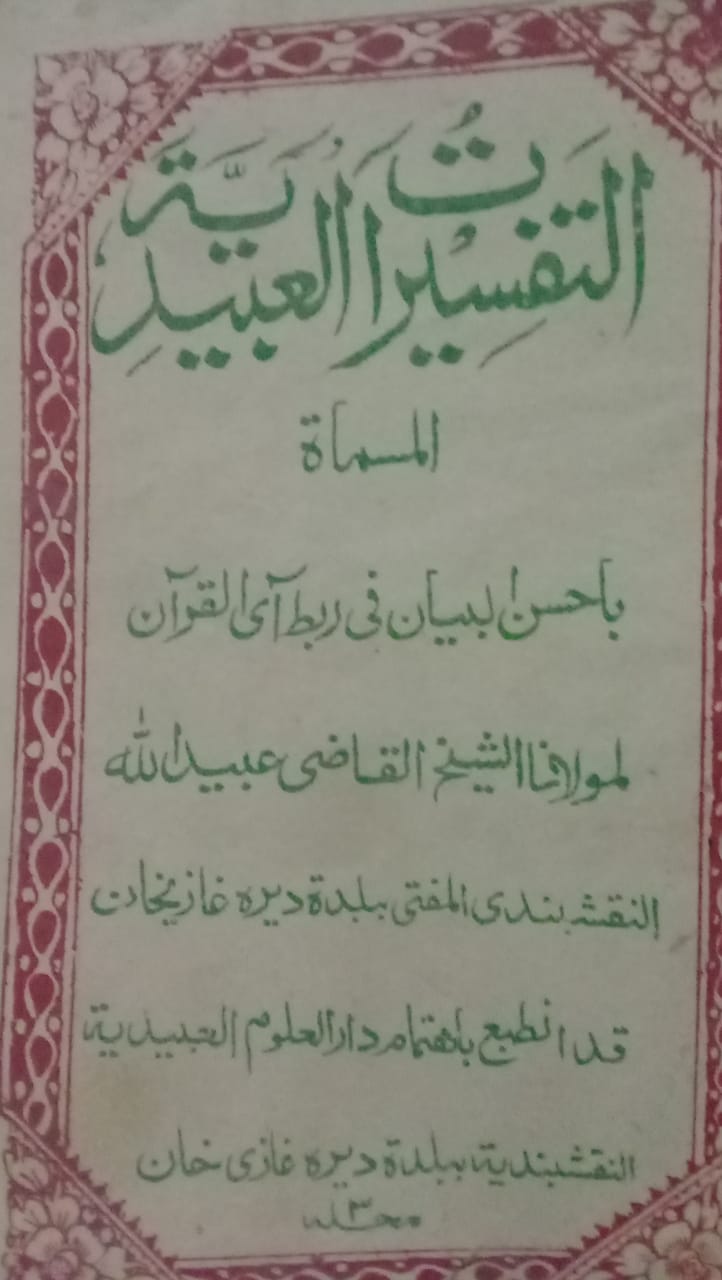 التفسيرات العبيدية
المسماة
باحسن البيان فى ربط آى القرآن
لمولانا الشيخ القاضى عبيد الله
النقشبندى المفتى ببلدة ديره غازيخان
قد انطبع باهتمام دار العلوم العبيدية
النقشبندية ببلدة ديره غازى خان